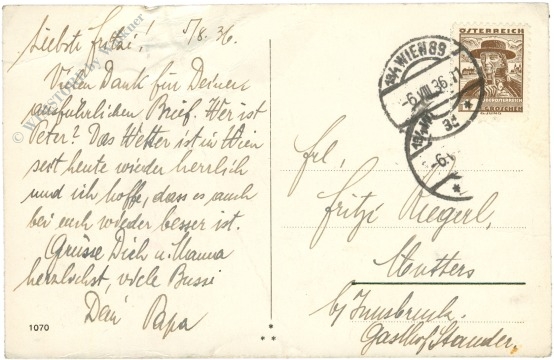 5/8. 36.
Liebste Fritzi!
Vielen Dank für Deinen
ausführlichen Brief. Wer ist
Peter? Das Wetter ist in Wien
seit heute wieder herrlich
und ich hoffe, dass es auch
bei euch wieder besser ist.
Grüsse Dich u. Mama
herzlichst, viele Bussi
Dein Papa
1070
WIEN 89
-6.VIII.36
ÖSTERREICH
GROSCHEN
Frl.
Fritzi Riegerl,
Mutters
b/ Innsbruck.
Gasthof Stauder.